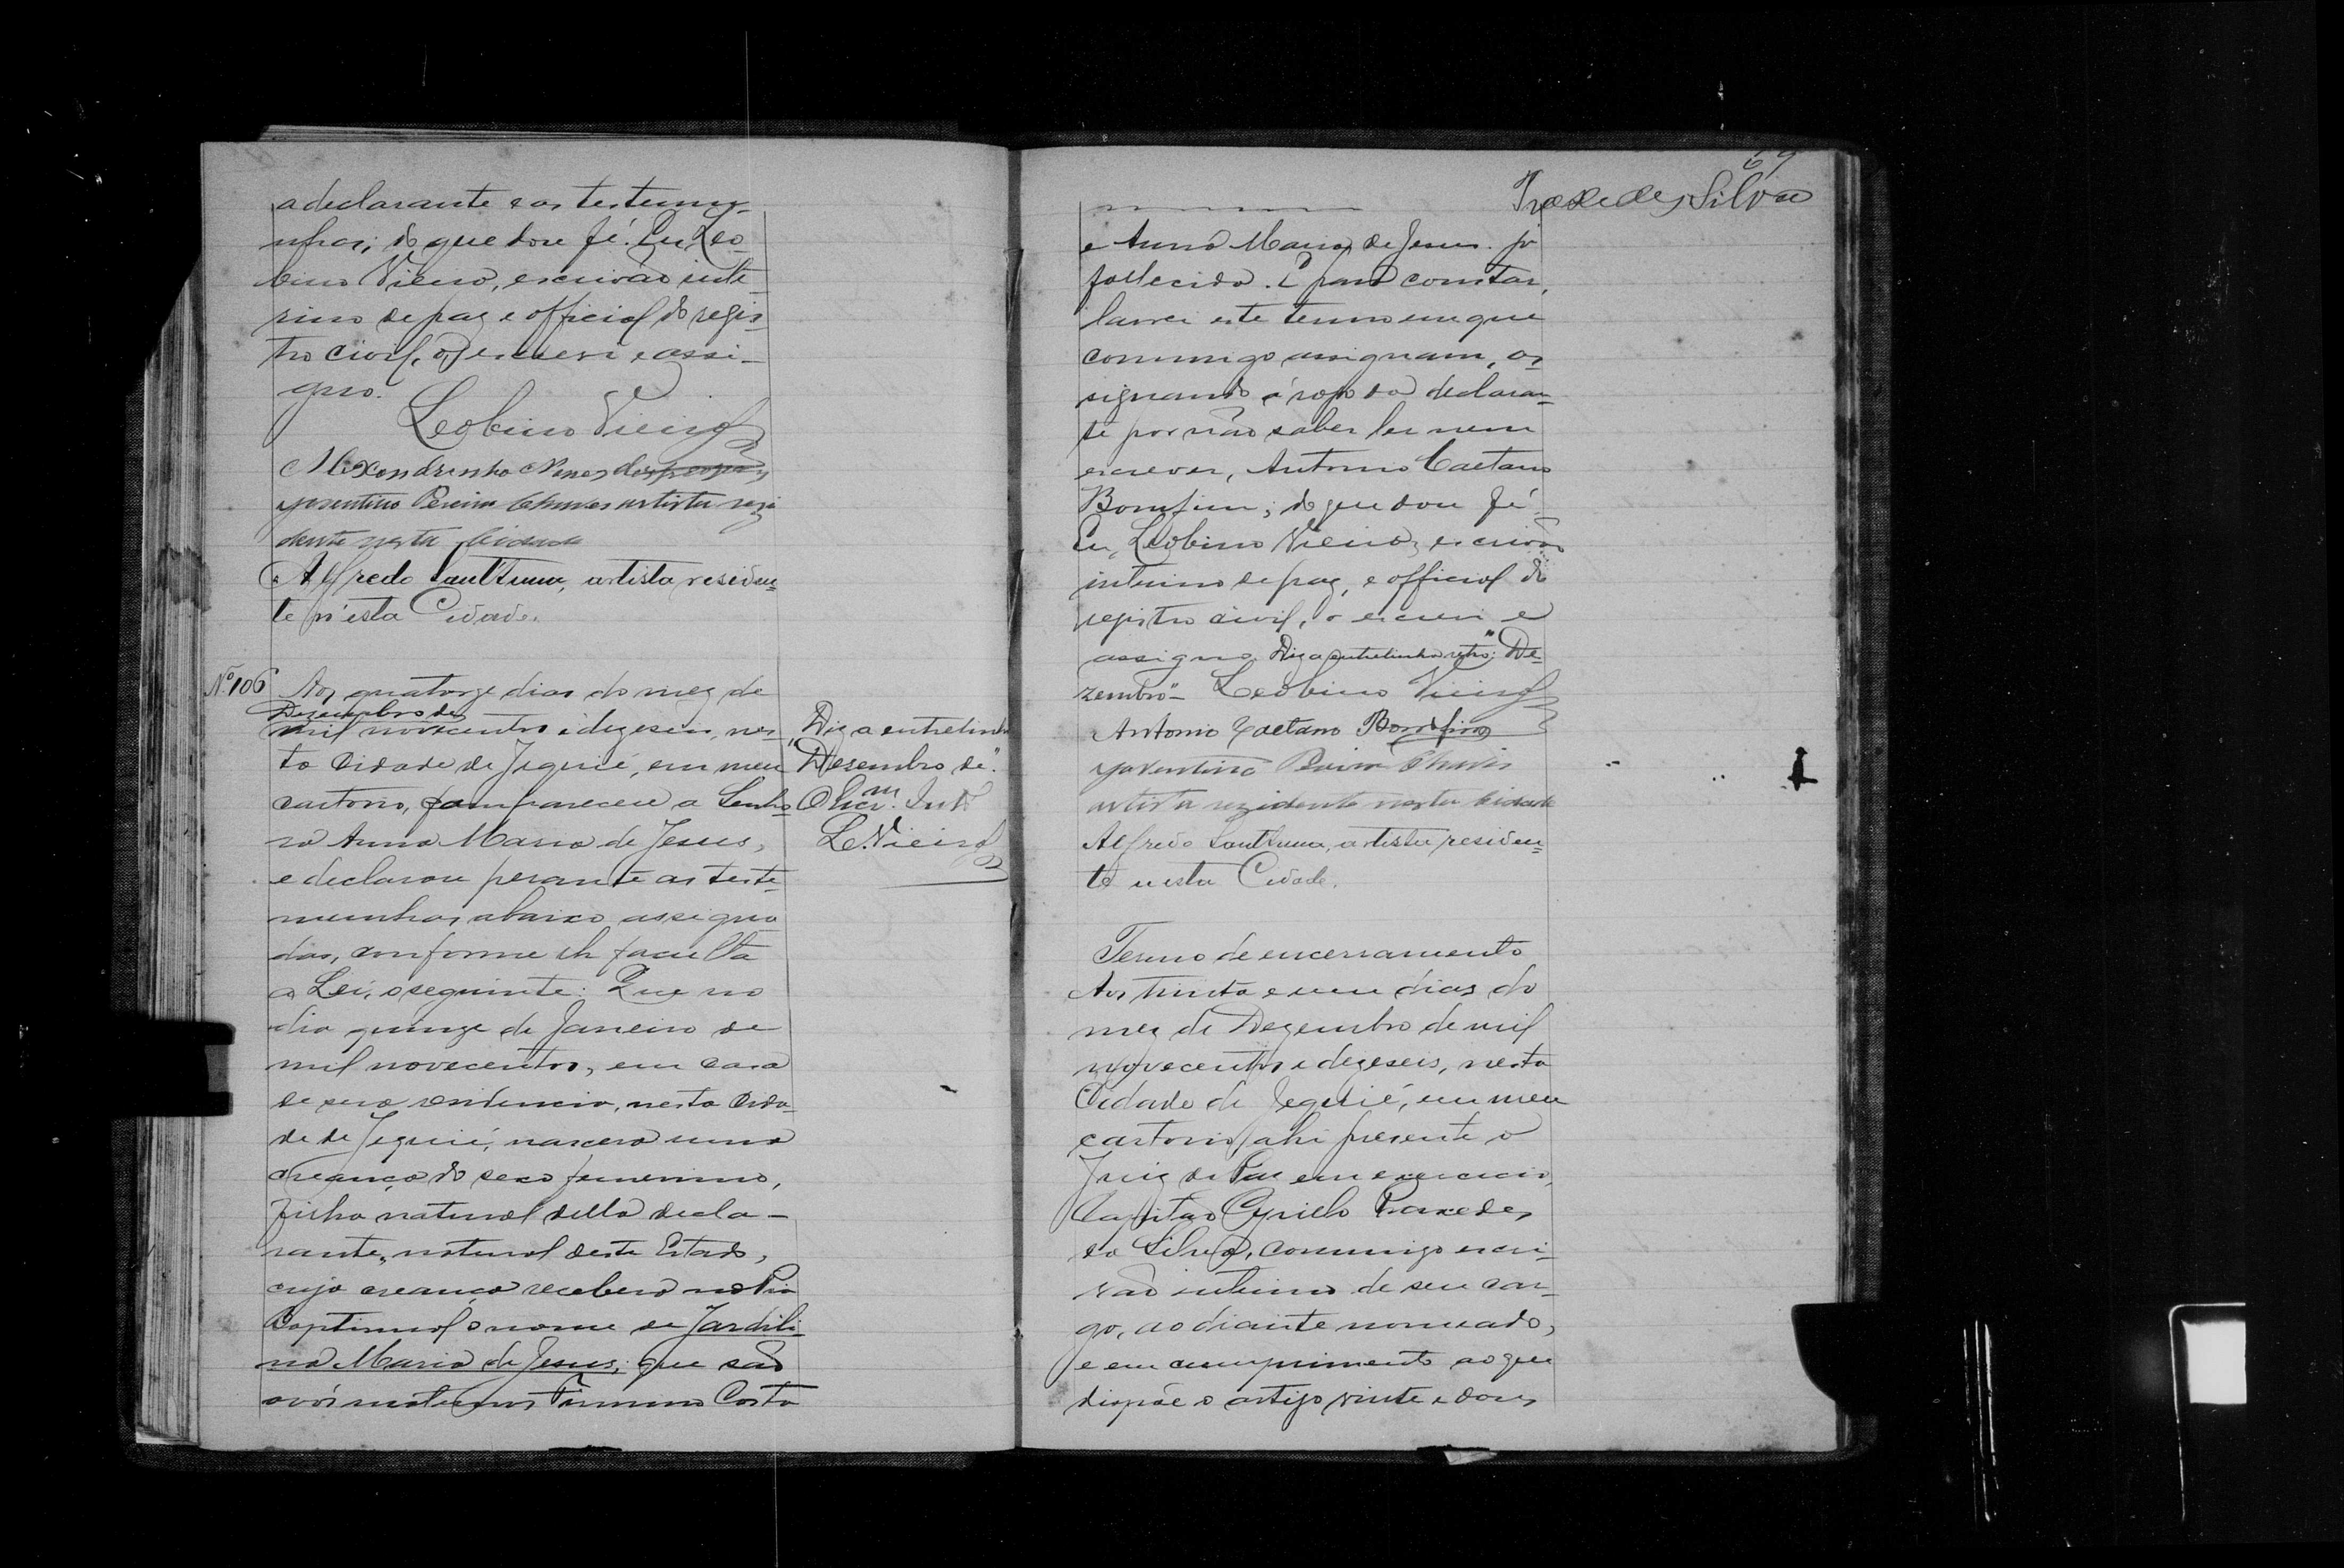 a declarante e as testemu-
nhas; do que dou fé. Eu, Leo-
bino Vieira, escrivão inte-
rino de paz e official do regis-
tro civil, o escrevi e assi-
gno.
Leobino Vieira
Alexandrinho Nunes
Juventino Pereira Chaves artista rezi
dente nesta Cidade
Alfredo Sant'Anna, artista residen-
te n'esta Cidade.
Nº 106 Aos quatorze dias do mez de
Dezembro de
mil novecentos e dezeseis, nes-
ta Cidade de Jequié, em meu
cartorio, compareceu a Senho-
ra Anna Maria de Jesus,
e declarou perante as teste-
munhas abaixo assigna
das, conforme lh faculta
a Lei, o seguinte: Que no
dia quinze de Janeiro de
mil novecentos, em casa
de sua residencia, nesta Cida-
de de Jequié, nascera uma
creança do sexo femenino,
filha natural della decla-
rante, natural deste Estado,
cuja creança recebera na Pia
Baptismal o nome de Jardili-
na Maria de Jesus; que são
avós maternos Firmino Costa
Diz a entrelinha
"Dezembro de".
O Escr.m Int.
L. Vieira
69
Praxedes Silva
e Anna Maria de Jesus. já
fallecida. E para constar,
lavrei este termo em que
commigo assignam, as
signando á rogo da declaran-
te por não saber ler nem
escrever, Antonio Caetano
Bomfim; do que dou fé.
Eu, Leobino Vieira, escrivão
interino de paz, e official do
registro civil, o escrevi e
assigno. Diz a entrelinha retro: "De-
zembro" - Leobino Vieira
Antonio Caetano Bomfim
Juventino Pereira Chaves
artista rezidente nesta Cidade
Alfredo Sant'Anna, artista residen-
te nesta Cidade.
Termo de encerramento
Aos trinta e um dias do
mez de Dezembro de mil
novecentos e dezeseis, nesta
Cidade de Jequié, em meu
cartorio, ahi presente o
Juiz de Paz em exercicio,
Capitão Cyrillo Praxedes
da Silva, commigo escri-
vão interino de seu car-
go, ao diante nomeado,
e em cumprimento ao que
dispõe o artigo vinte e dous